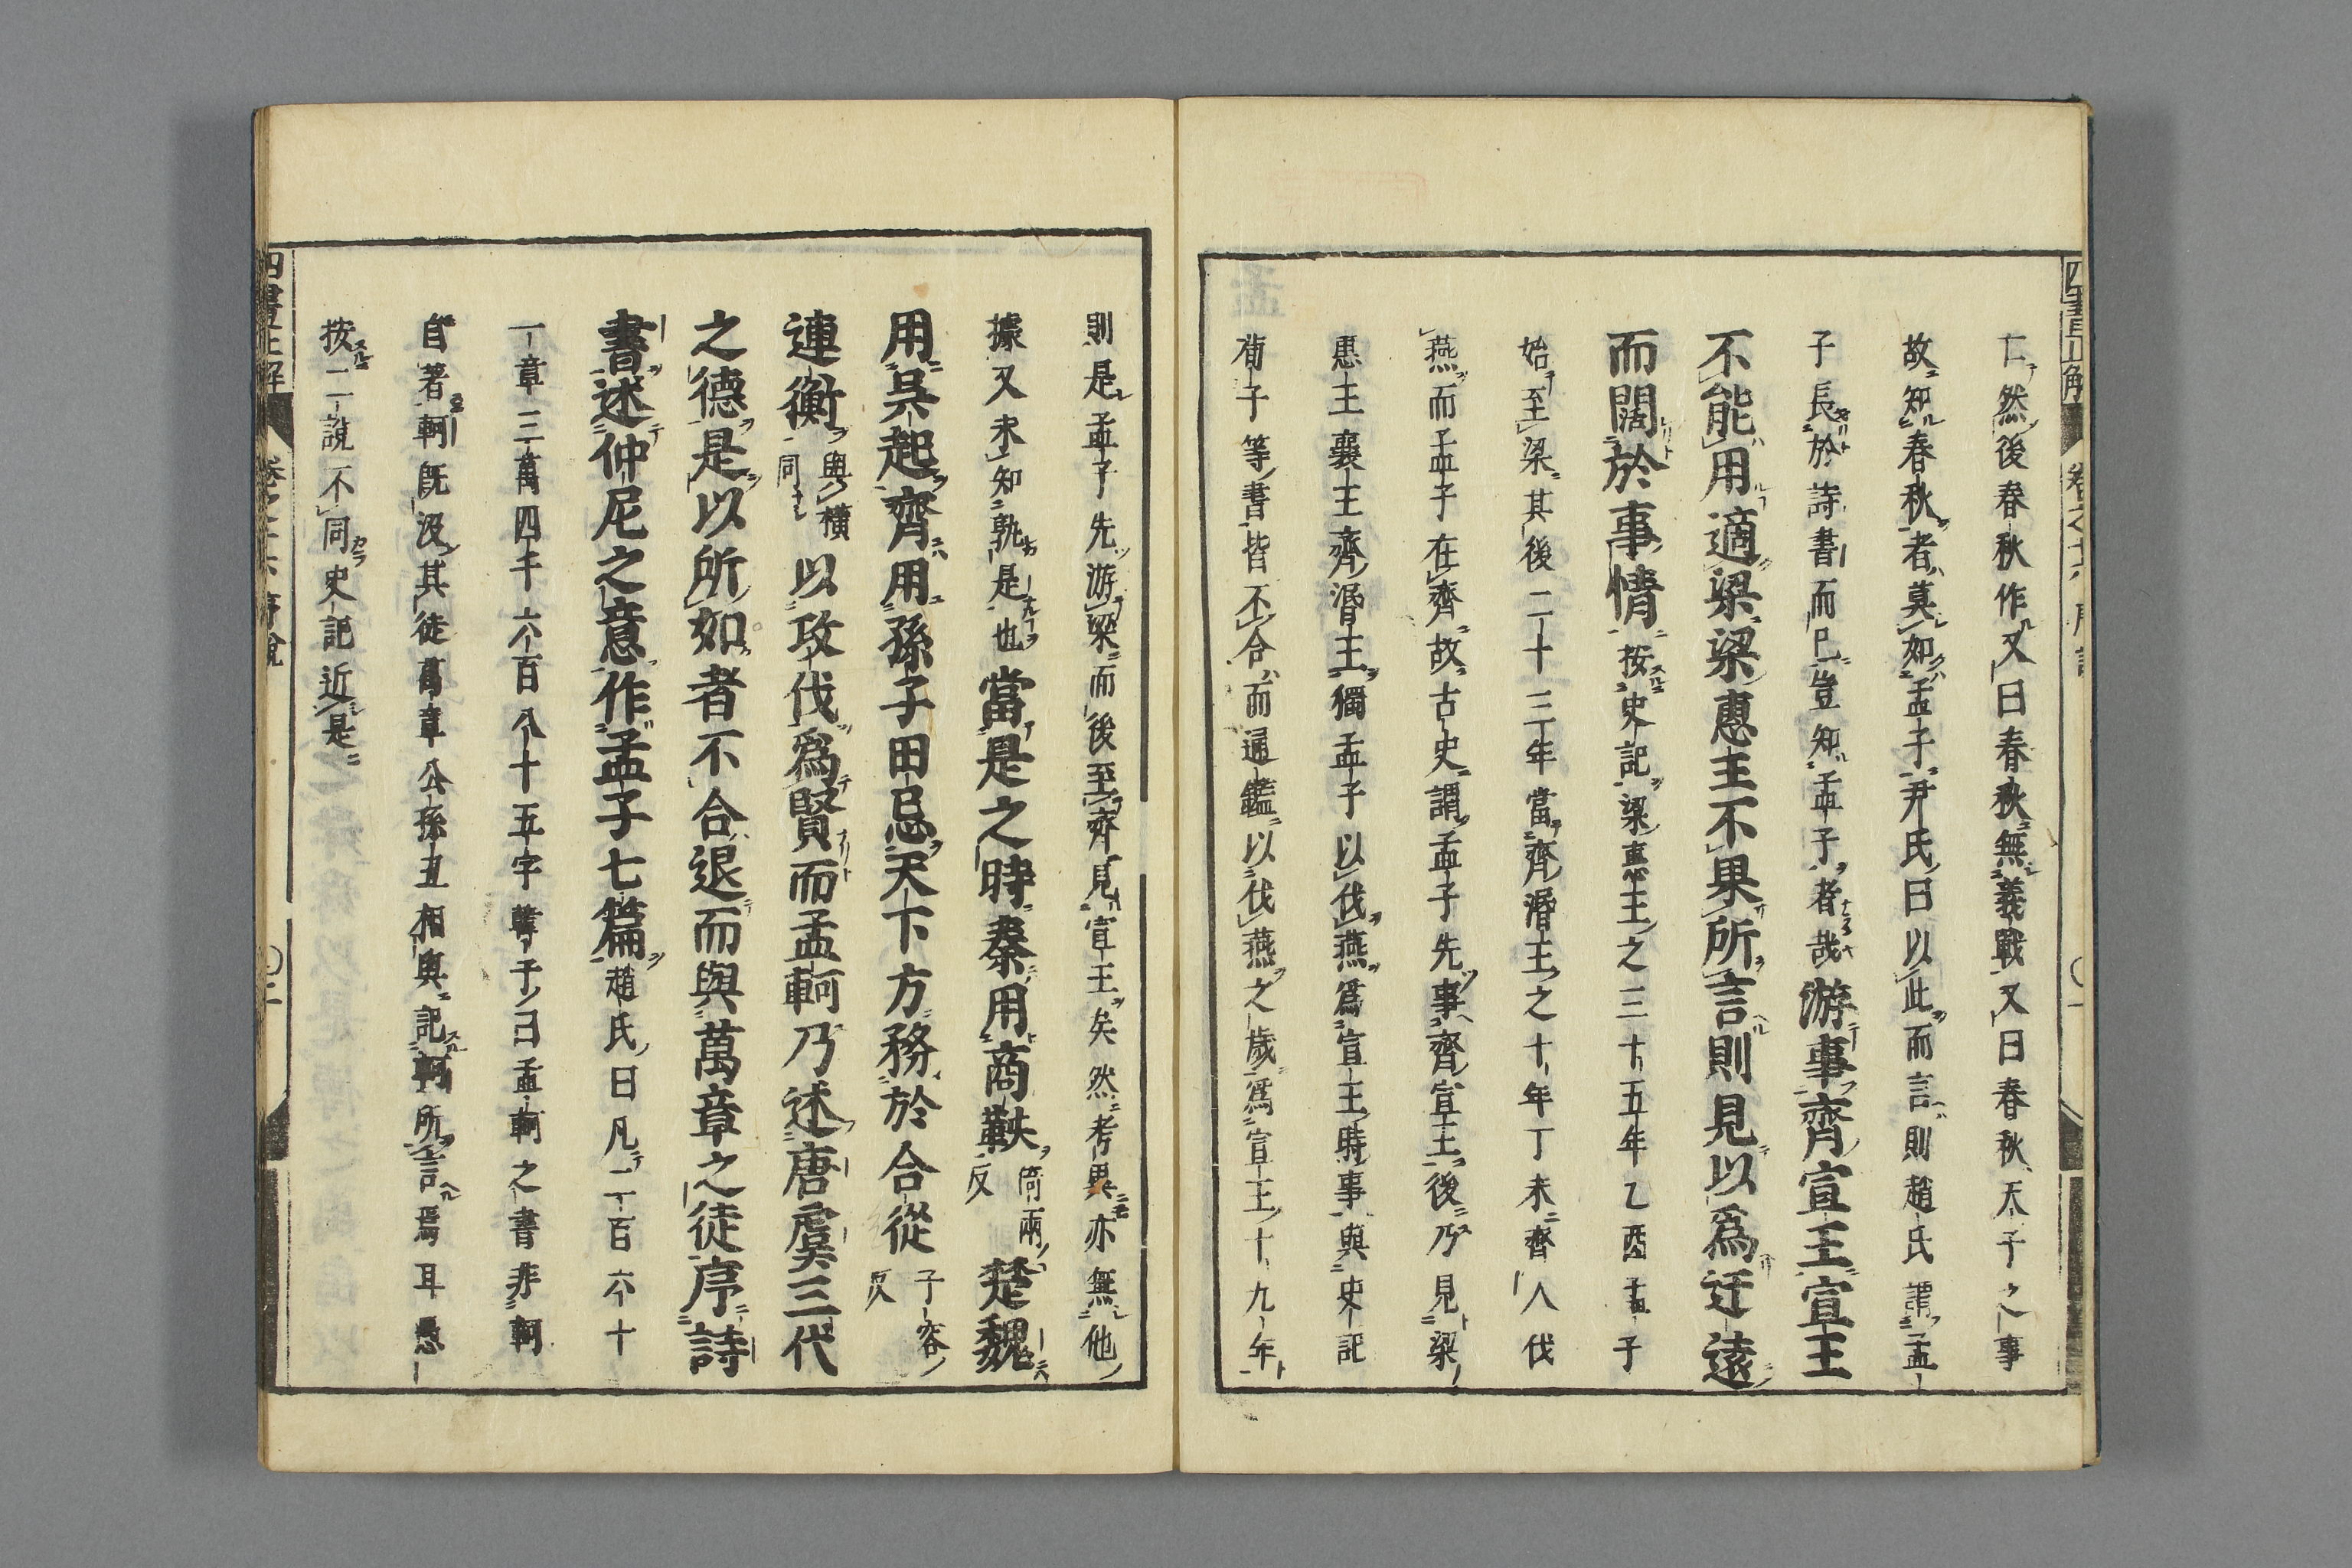 亡然後春秋作又曰春秋無義戰又曰春秋天子之事
故知春秋者莫如孟子尹氏曰以此而言則趙氏謂孟
子長於詩書而已豈知孟子者哉游事齊宣王宣王
不能用適梁梁惠王不果所言則見以爲迂遠
而闊於事情按史記梁惠王之三十五年乙酉孟子
始至梁其後二十三年當齊湣王之十年丁未齊人伐
燕而孟子在齊故古史謂孟子先事齊宣王後乃見梁
惠王襄王齊湣王獨孟子以伐燕爲宣王時事與史記
荀子等書皆不合而通鑑以伐燕之歲爲宣王十九年
則是孟子先游梁而後至齊見宣王矣然考異亦無他
據又未知孰是也當是之時秦用商鞅倚兩反楚魏
用吳起齊用孫子田忌天下方務於合從子容反
連衡與橫同以攻伐爲賢而孟軻乃述唐虞三代
之德是以所如者不合退而與萬章之徒序詩
書述仲尼之意作孟子七篇趙氏曰凡二百六十
一章三萬四千六百八十五字韓子曰孟軻之書非軻
自著軻既沒其徒萬章公孫丑相與記軻所言焉耳愚
按二說不同史記近是
四書正解 卷之十六 序說 〇二